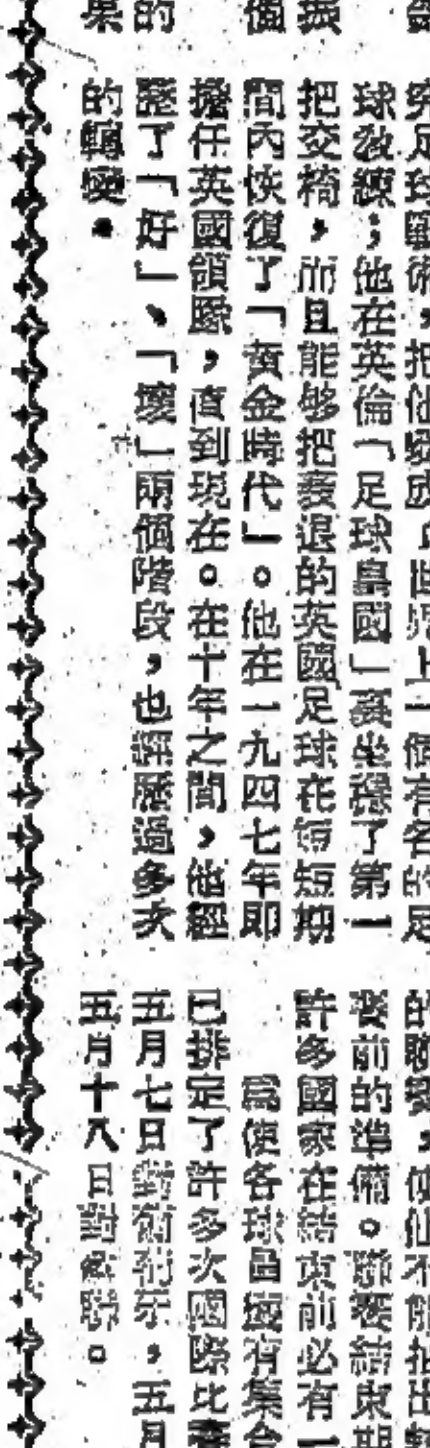 究足球戰術,把他變成世界上一個有名的足
球教練;他在英倫「足球皇國」裏坐穩了第一
把交椅,而且能够把衰退的英國足球在短短期
間內恢復了「黃金時代」。他在一九四七年即
擔任英國領隊,直到現在。在十年之間,他經
歷了「好」、「壞」兩個階段,也經歷過多次
的轉變。
賽前的準備。聯賽結束期
許多國家在結束前必有一
為使各球員還有集合
已排定了許多次國際比賽
五月七日對葡萄牙,五月
五月十八日對蘇聯。